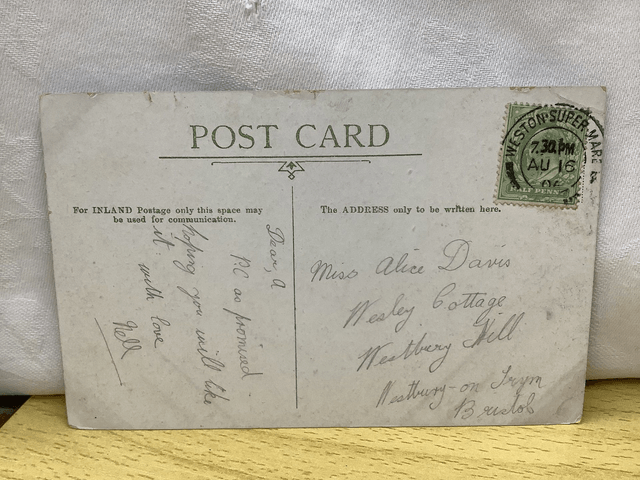 POST CARD
For INLAND Postage only this space may
be used for communication.
Dear, A
P.C as promised.
hoping you will like
it. with love
Nell
The ADDRESS only to be written here.
Miss Alice Davis
Wesley Cottage
Westbury Hill
Westbury-on Trym
Bristol
WESTON-SUPER-MARE
7.30 PM
AU 16
06
HALF PENNY